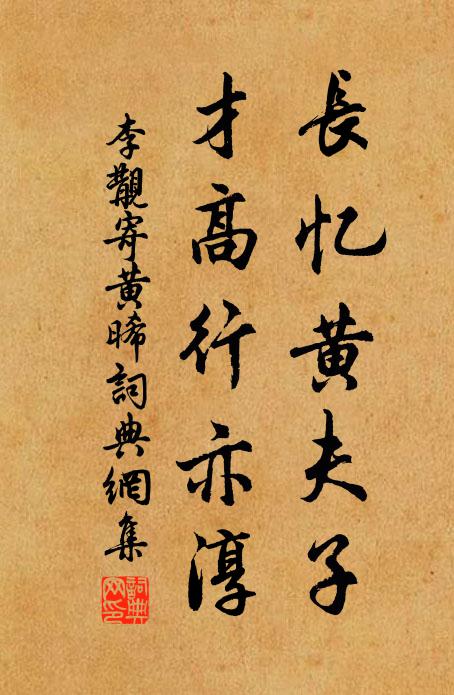 長忆黄夫子
才高行亦淳
李覯寄黄晞詞典網集
詞典網印